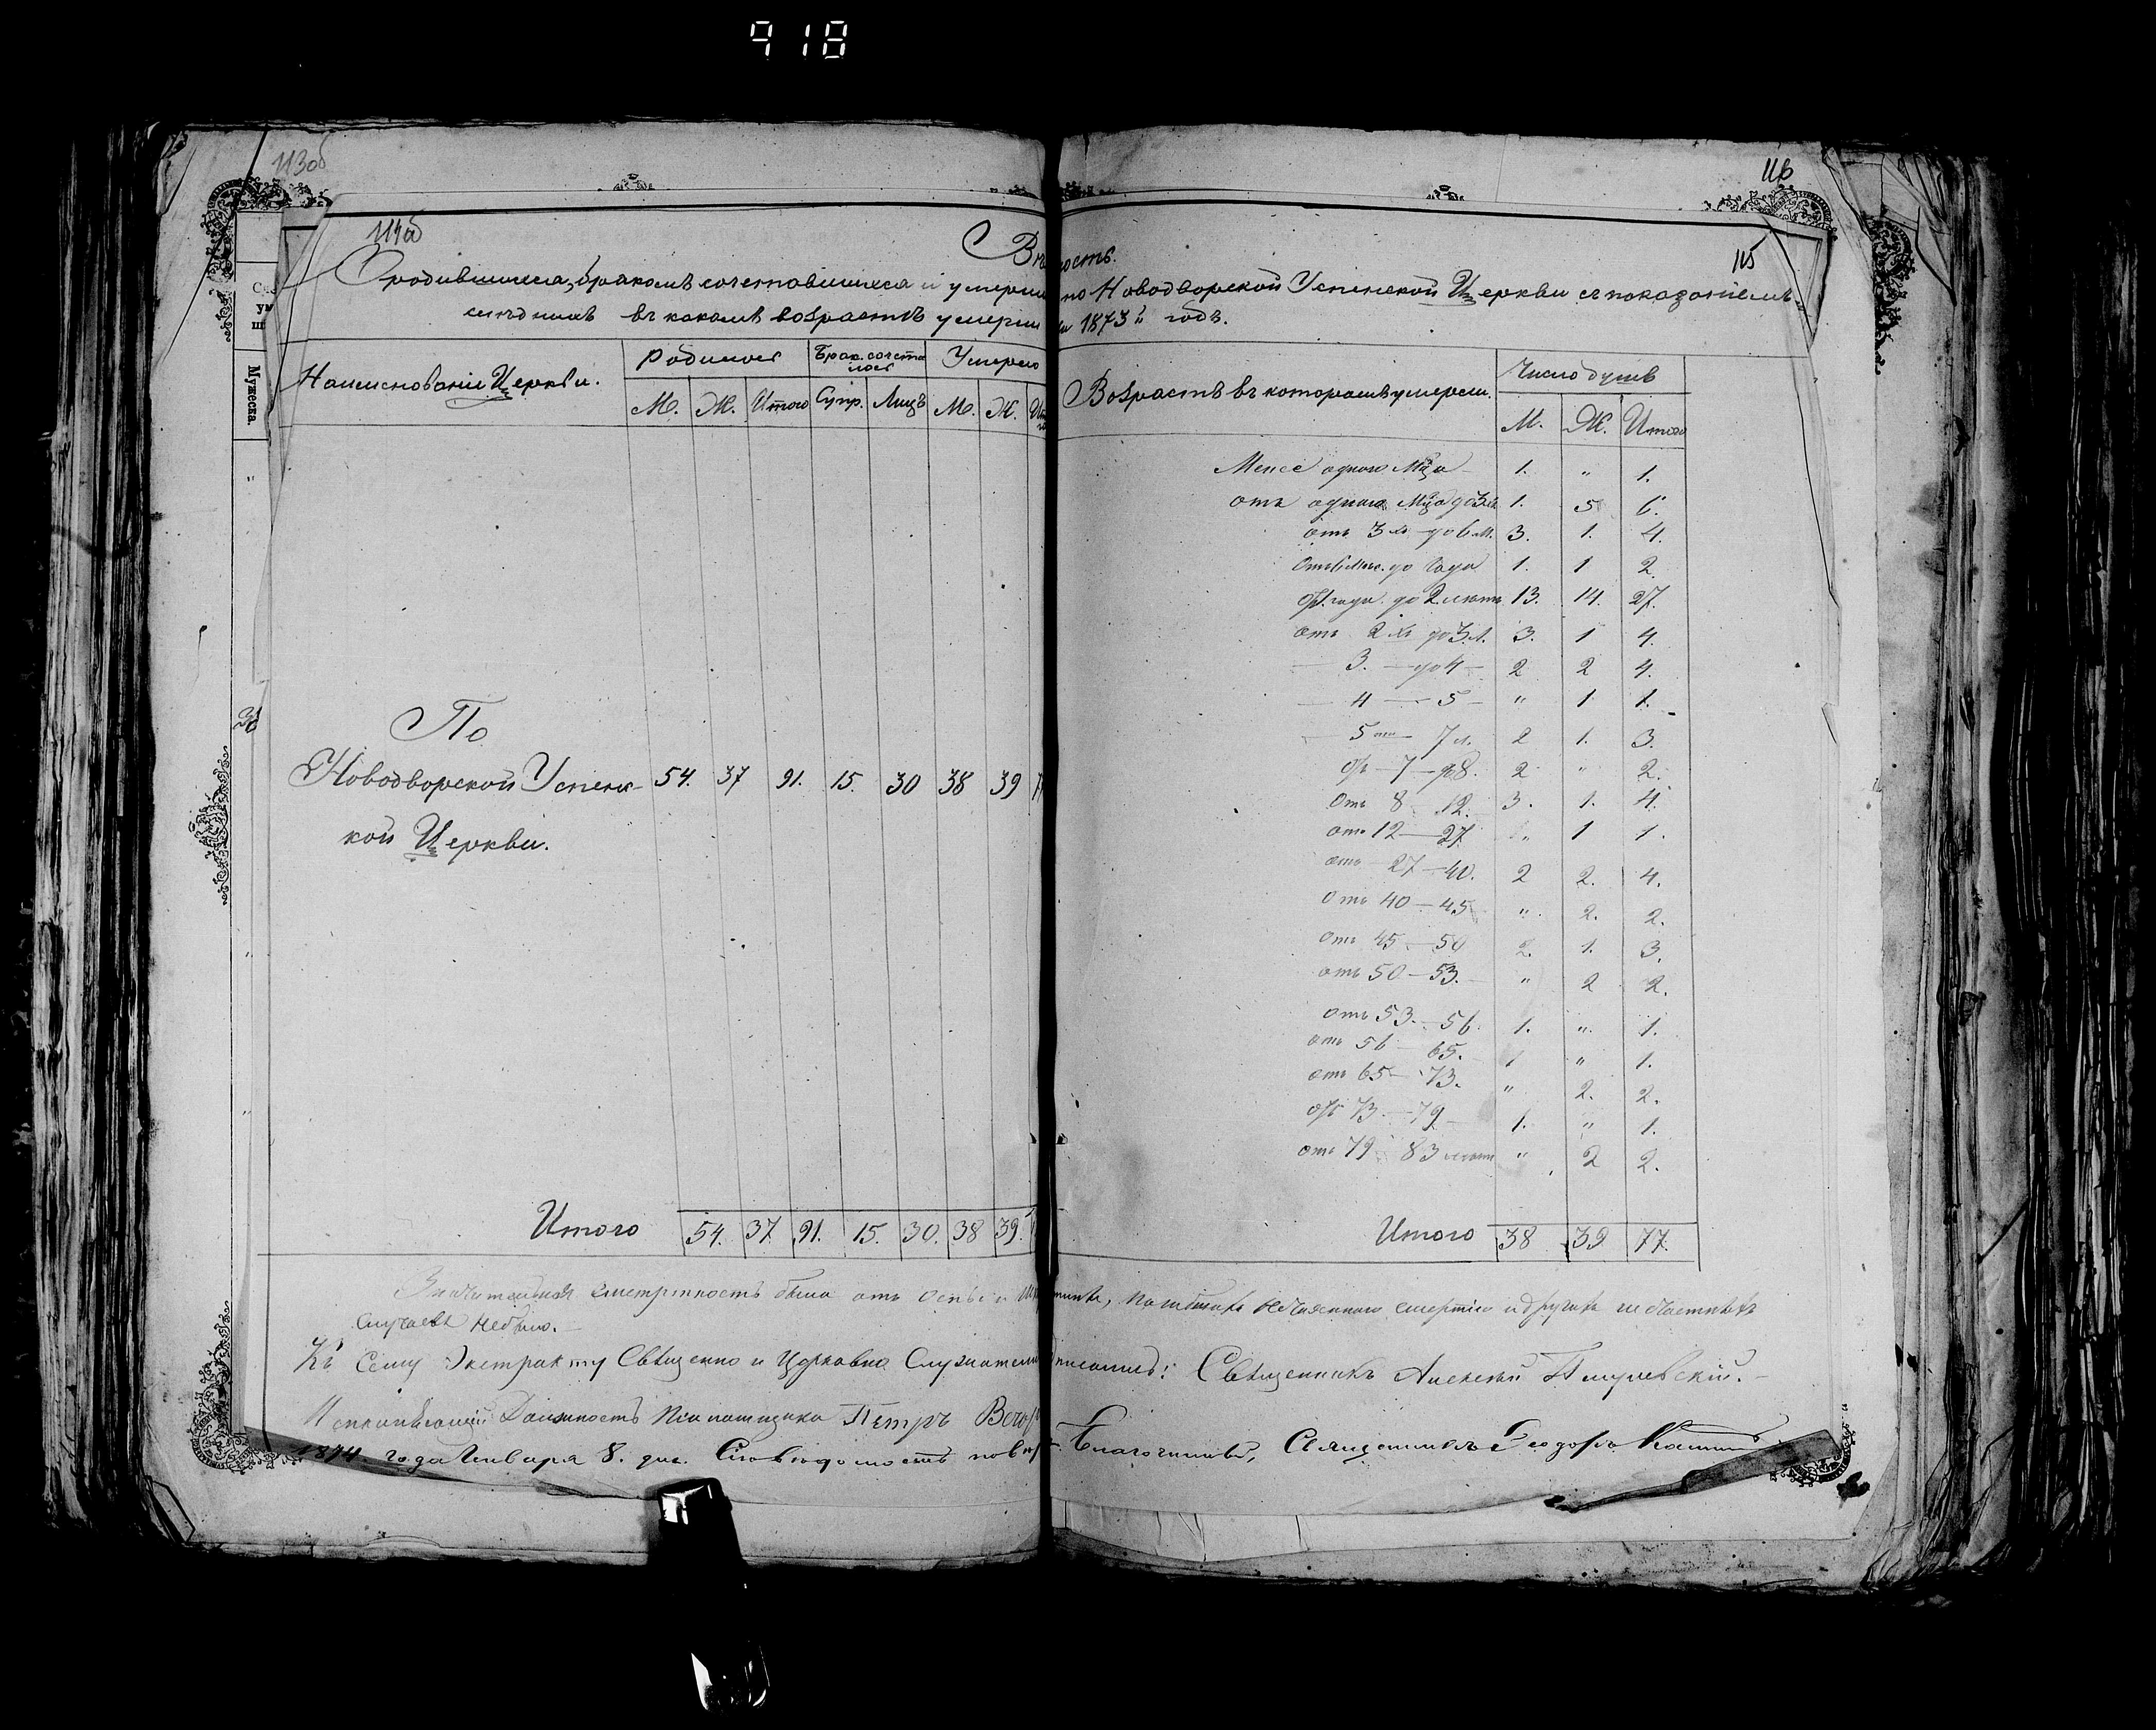 918
113об
114об
116
115
Вѣдомость.
О родившихся, бракомъ сочетавшихся и умерши по Новодворской Успенской Церкви съ показаніемъ
въ какомъ возрастѣ умерли 1873 годъ.
Мужеска.
Наименованіе Церкви. Родилось Брак. сочеталось Умерло Возрастъ въ которомъ умерли. Число душъ
М. Ж. Итого Супр. Лицъ М. Ж. М. Ж. Итого
Менее одного Мца 1. " 1.
отъ одного Мца до 3хъ 1. 5 6.
отъ 3хъ до 6 м. 3. 1. 4.
Отъ 6 мѣс. до Года 1. 1 2.
От года до 2 лѣтъ 13. 14. 27.
отъ 2хъ до 3 л. 3. 1 4.
— 3. — до 4 — 2 2 4.
— 4 — 5 — " 1 1.
— 5 — 7 л. 2 1. 3.
От — 7 — до 8. 2 " 2.
Отъ 8 12. 3. 1. 4.
отъ 12 — 27 " 1 1.
отъ 27 — 40. 2 2. 4.
Отъ 40 — 45 ". 2. 2.
Отъ 45 — 50 2. 1. 3.
отъ 50 — 53. " 2 2.
отъ 53. — 56. 1. ". 1.
отъ 56 — 65. 1 " 1.
отъ 65 — 73. " 2. 2.
отъ 73. — 79 1. " 1.
отъ 79 83 лѣтъ " 2 2.
По
Новодворской Успенс- 54. 37 91. 15. 30 38 39
кой Церкви.
Итого 54. 37 91. 15. 30. 38 39. Итого 38 39 77.
Значительная смертность была отъ оспы и погибшихъ нечаянною смертію и другихъ несчастныхъ
Случаевъ небыло.
Къ Сему Экстракту Священно и Церковно Служители подписались: Священникъ Алексѣй
Исправляющій Должность Псаломщика Петръ
1874. года Января 8. дня. Сію вѣдомость повѣр. Благочинный, Священникъ Ѳеодоръ